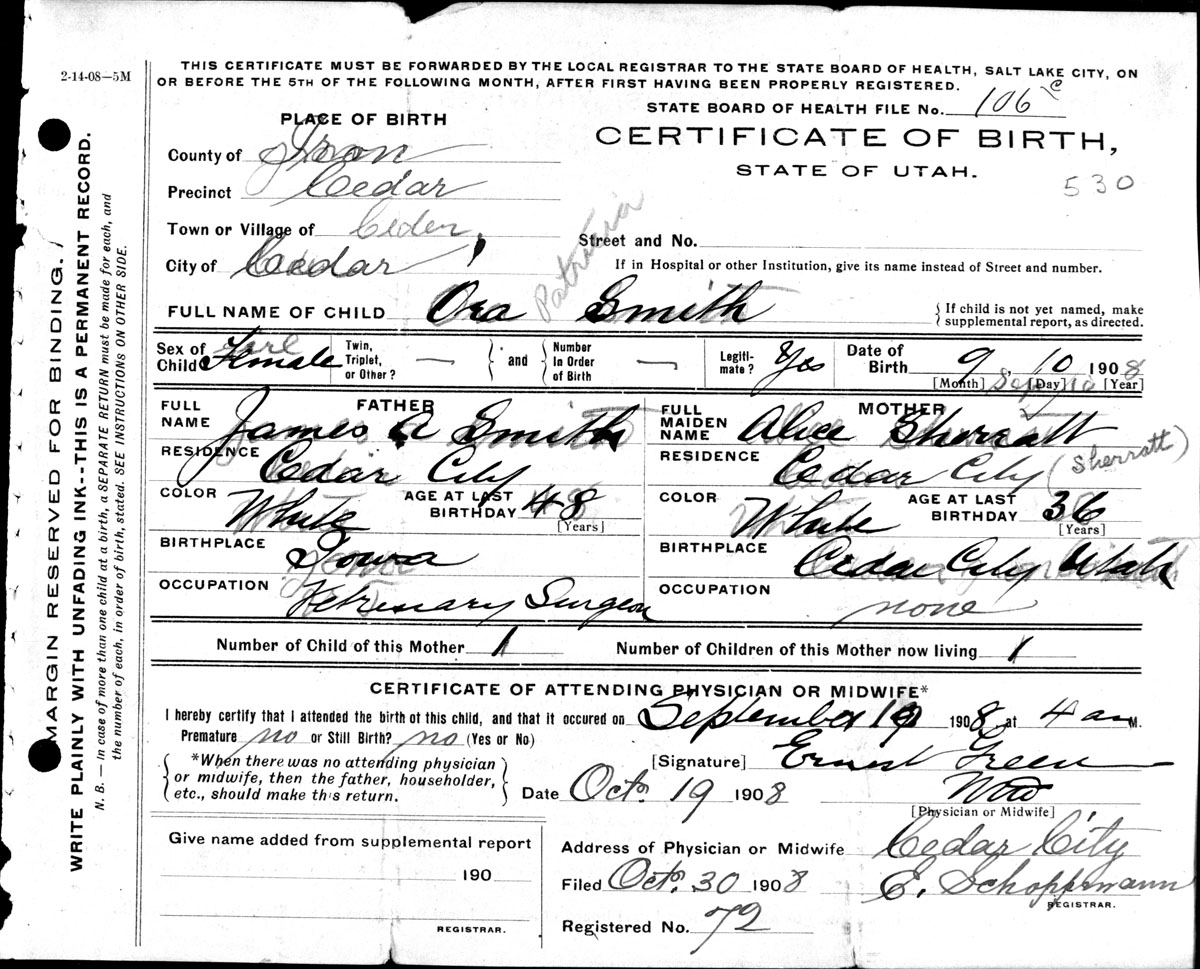 2-14-08—5M
THIS CERTIFICATE MUST BE FORWARDED BY THE LOCAL REGISTRAR TO THE STATE BOARD OF HEALTH, SALT LAKE CITY, ON
OR BEFORE THE 5TH OF THE FOLLOWING MONTH, AFTER FIRST HAVING BEEN PROPERLY REGISTERED.
STATE BOARD OF HEALTH FILE No. 106
PLACE OF BIRTH
CERTIFICATE OF BIRTH,
STATE OF UTAH.
530
County of Iron
Precinct Cedar
Town or Village of Ceder
City of Cedar
Street and No.
If in Hospital or other Institution, give its name instead of Street and number.
FULL NAME OF CHILD Ora Smith
If child is not yet named, make
supplemental report, as directed.
Sex of Child Female
Twin, Triplet, or Other? —
and
Number In Order of Birth —
Legiti-mate? Yes
Date of Birth 9, 10 1908
[Month] [Day] [Year]
FATHER
FULL NAME James A Smith
RESIDENCE Cedar City
COLOR White
AGE AT LAST BIRTHDAY 48
[Years]
BIRTHPLACE Iowa
OCCUPATION Vetrinary Surgeon
MOTHER
FULL MAIDEN NAME Alice Sherratt
RESIDENCE Cedar City (Sherratt)
COLOR White
AGE AT LAST BIRTHDAY 36
[Years]
BIRTHPLACE Cedar City Utah
OCCUPATION none
Number of Child of this Mother 1
Number of Children of this Mother now living 1
CERTIFICATE OF ATTENDING PHYSICIAN OR MIDWIFE*
I hereby certify that I attended the birth ot this child, and that it occured on September 1908 at 4 a M.
Premature no or Still Birth? no (Yes or No)
*When there was no attending physician
or midwife, then the father, householder,
etc., should make this return.
[Signature] Ernest Green
Date Oct. 19 1908
[Physician or Midwife]
Give name added from supplemental report
190
REGISTRAR.
Address of Physician or Midwife Cedar City
Filed Oct. 30 1908 E. Schoppmann
REGISTRAR.
Registered No. 72
MARGIN RESERVED FOR BINDING.
WRITE PLAINLY WITH UNFADING INK--THIS IS A PERMANENT RECORD.
N. B.—In case of more than one child at a birth, a SEPARATE RETURN must be made for each, and
the number of each, in order of birth, stated. SEE INSTRUCTIONS ON OTHER SIDE.